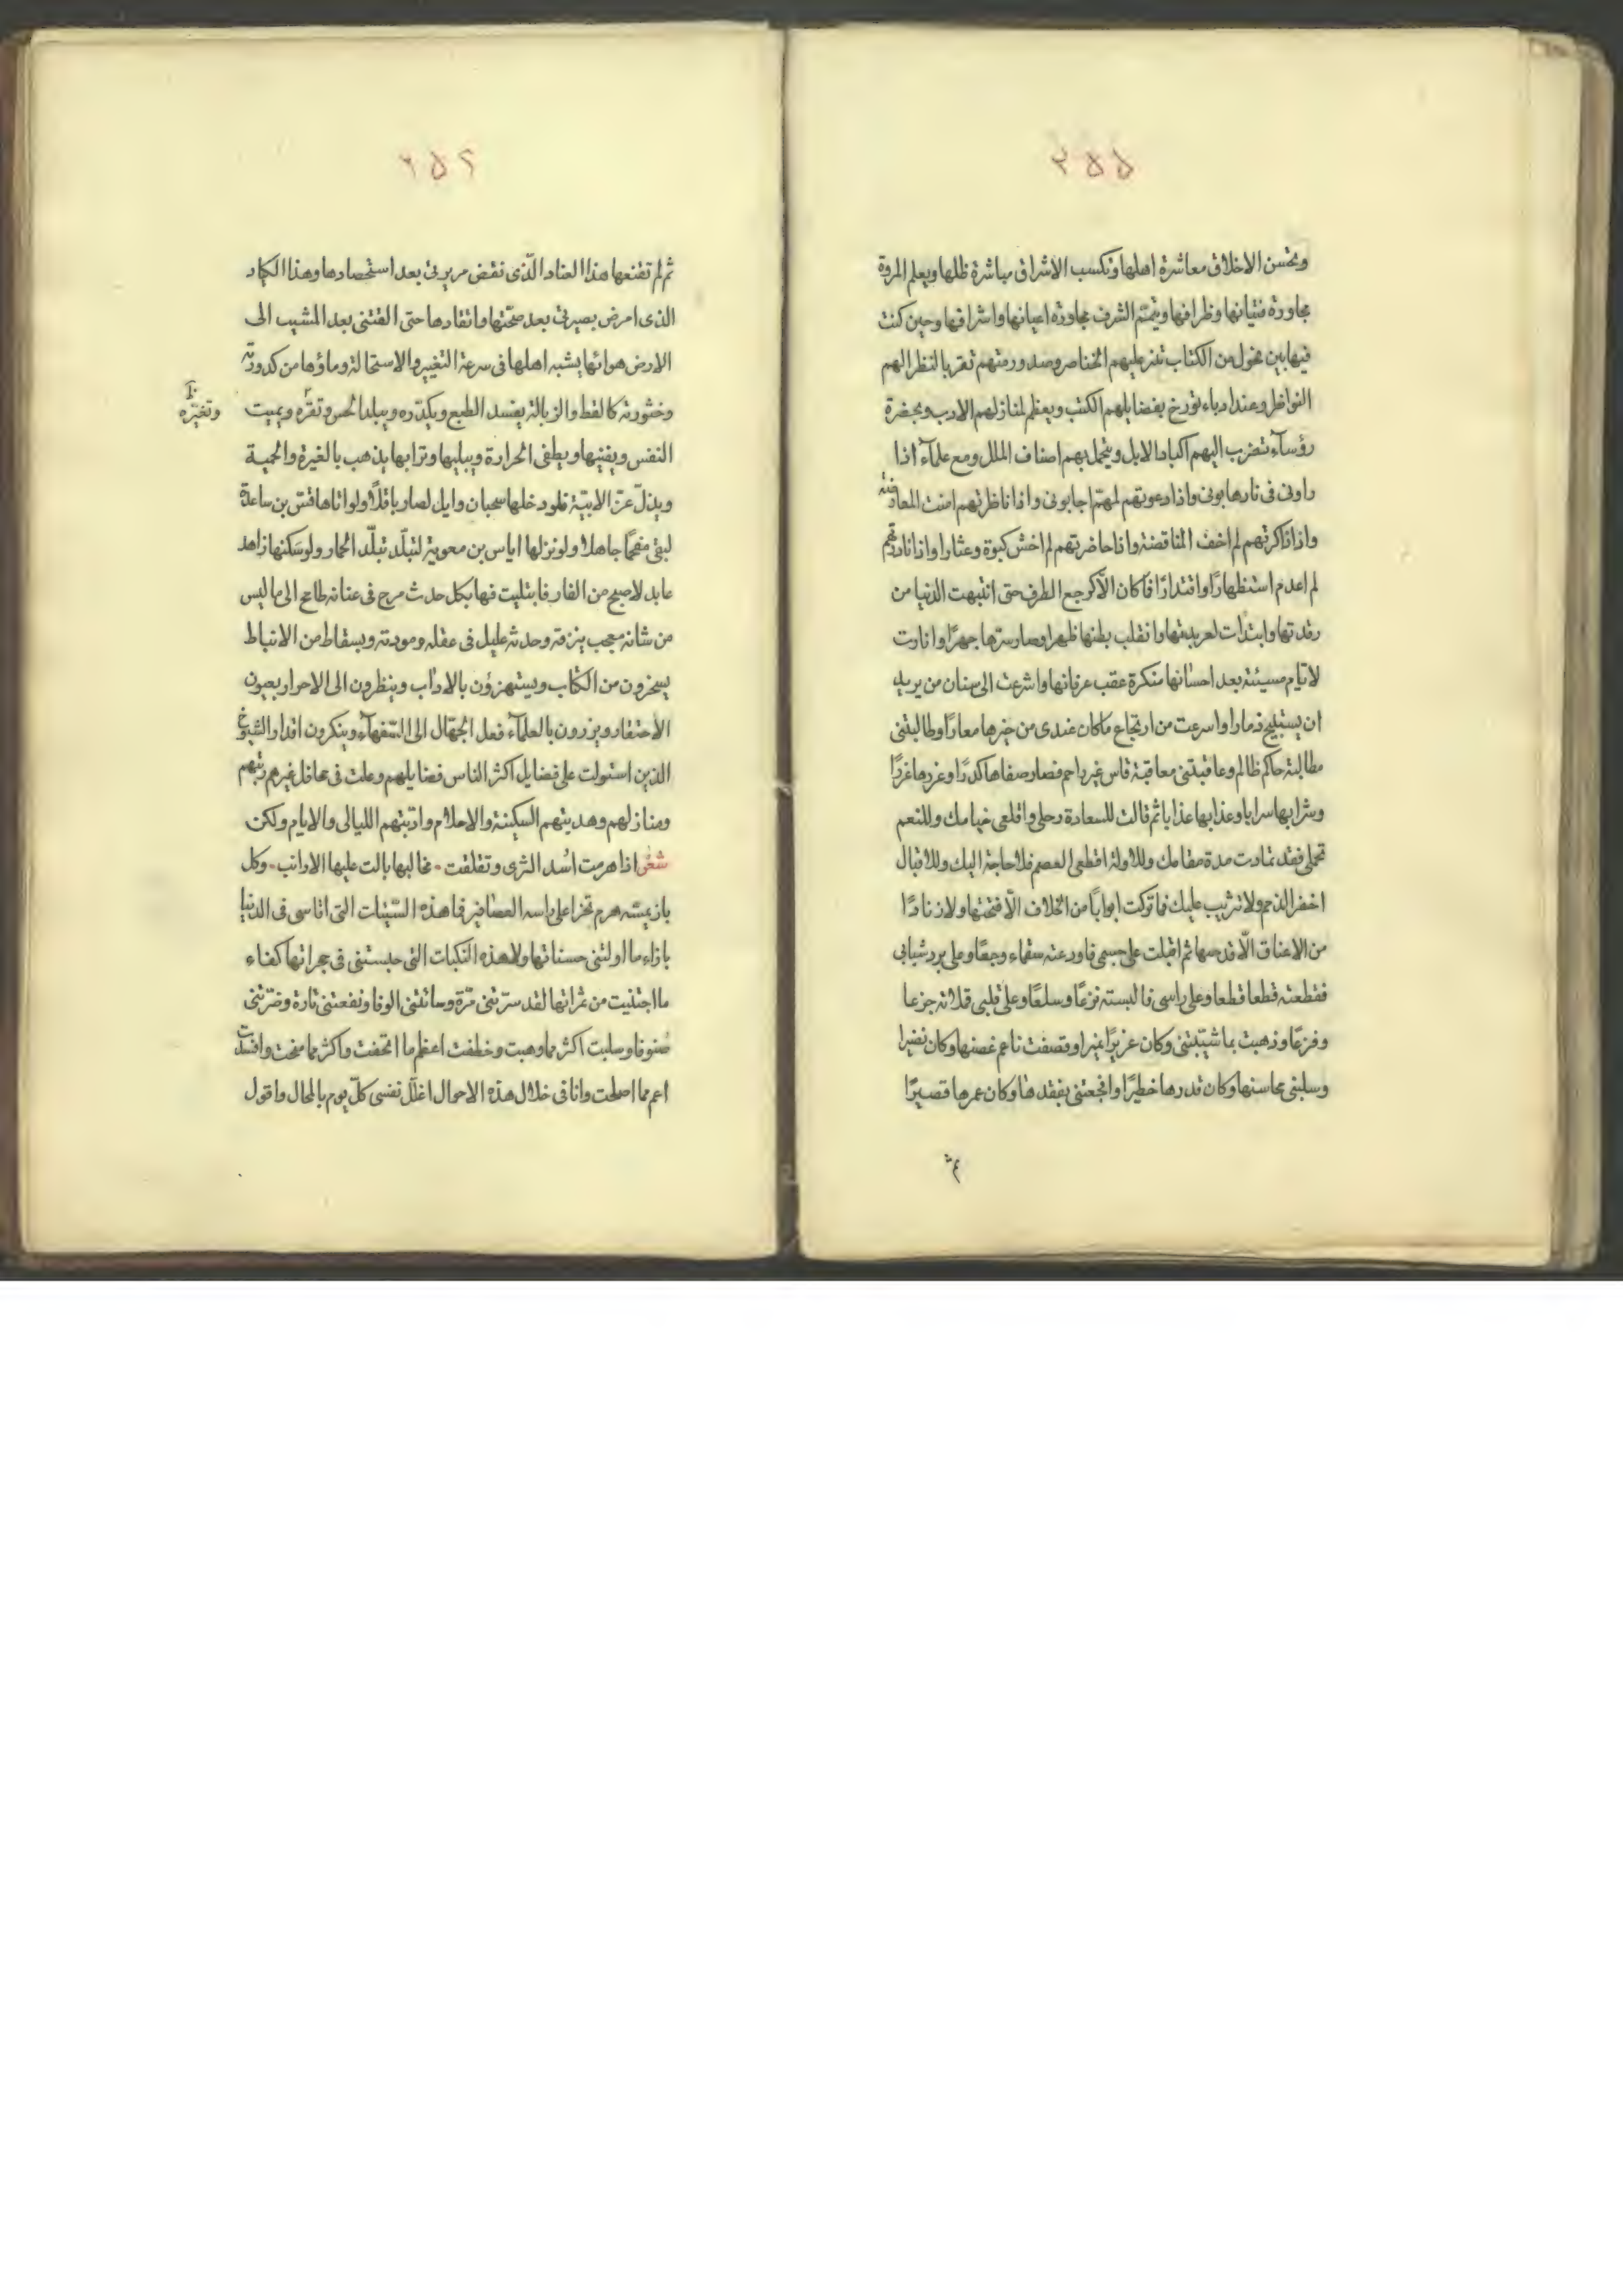 ٢٥٥
وتحسن الاخلاق معاشرة اهلها وتكسب الاشراق مباشرة ظلها ويعلم المروة
مجاورة فتيانها وظرافها ويتمم الشرف مجاورة اعيانها واشرافها وحين كنت
فيها بين فحول من الكتاب تغنز عليهم الخناصر وصدور منهم تقر بالنظر الهم
النواظر وعند ادباء تورخ بفضايلهم الكتب ويعظم لمنازلهم الادب وبحضرة
رؤسآء تضرب اليهم اكباد الابل ويتجمل بهم اصناف الملل ومع علمآء اذا
راونى فى نارها بونى واذا دعوتهم لمهم اجابونى واذا ناظرتهم امنت المعا
واذا ذاكرتهم لم اخف المناقضة واذا حاضرتهم لم اخش كبوة وعثارا واذا نادمتهم
لم اعدم استظهارًا واقتدارًا فما كان الّا كرجع الطرف حتى انتبهت الدنيا من
رقدتها وابتدأت لعربدتها وانقلب بطنها ظهرا وصار سترها جهرًا وانارت
لايام مسيئة بعد احسانها منكرة عقب عرفانها واشرعت الى سنان من يريد
ان يستبيح ذمارا واسرعت من ارتجاع ما كان عندى من خيرها معارًا وطالبتنى
مطالبة حاكم ظالم وعاقبتنى معاقبة قاس غير راحم فصار صفاها كدرًا وغردها غررًا
وشرابها سرابا وعذابها عذابا ثم قالت للسعادة رحلى واقلعى خيامك وللنعم
تحملى فقد تمادت مدة مقامك وللاولة اقطعى العصم فلا حاجة اليك وللاقبال
اخفر الذمم ولا تثريب عليك فما تركت ابوابًا من الخلاف الّا فتحتها ولا زنادًا
من الاعناق الّا قدحها ثم اقبلت على جسمى فاورعته سقماء وجعًا وعلى برد شبابى
فقطعته قطعا قطعا وعلى راسى فالبسته نزعًا وسلعًا وعلى قلبى قلاته جزعا
وفزعًا وذهبت بما شيبتنى وكان غزيرًا نميرا وقصفت ناعم غصنها وكان نضيرا
وسلبنى محاسنها وكان قدرها خطيرًا وافجعتنى بفقدها وكان عمرها قصيرًا
ثم
٢٥٦
ثم لم تقنعها هذا العناد الّذى نقض مريرتى بعد استحصادها وهذا الكياد
الذى امرض بصيرتى بعد صحّتها واتقادها حتى الفتنى بعد المشيب الى
الارض هوائها يشبه اهلها فى سرعة التغيير والاستحالة وماؤها من كدورته
وخثورته كالقط والزبالة يفسد الطبع ويكدّره ويبلد الحس وتقرّه ويميت
وتغيّره
النفس ويفنيها ويطفى الحرارة ويبليها وترابها يذهب بالغيرة والحمية
ويذلّ عز الابيّة فلو دخلها سحبان وايل لصار باقلًا ولو اتاها قسّ بن ساعدة
لبقى مفحمًا جاهلا ولو نزلها اياس بن معوية لتبلّد تبلّد الحمار ولو سكنها زاهد
عابد لاصبح من الفار فابتليت فيها بكل حدث مرح فى عنانه طامح الى ما ليس
من شانه معجب بنزقه وحدثه عليل فى عقله ومودته وبسقاط من الانباط
يسخرون من الكتاب ويستهزؤن بالآداب وينظرون الى الاحرار بعيون
الاحتقار ويزرون بالعلمآء فعل الجهّال الى السّفهآء وينكرون اقدار الشيوخ
الذين استولت على فضايل اكثر الناس فضايلهم وعلت فى محافل غيرهم رتبهم
ومنازلهم وهديتهم السكينة والاحلام وادّبتهم الليالى والايام ولكن
شعر اذا هرمت اسُد الثرى وتقلقت ۰ مخالبها بالت عليها الارانب ۰ وكل
باز يمسّه هرم تخرا على راسه العصافير فما هذه السّيئات التى اقاسى فى الدنيا
بازاء ما اولتنى حسناتها ولا هذه النكبات التى حبستنى فى حجراتها كفاء
ما اجتنيت من ثمراتها لقد سرّتنى مرّة وسائتنى الوفا ونفعتنى تارة وضرّتنى
صنوفا وسلبت اكثر مما وهبت وخطفت اعظم ما اتحفت واكثر مما منحت وافسدت
اعم مما اصلحت وانا فى خلال هذه الاحوال اعلّل نفسى كلّ يوم بالمحال واقول